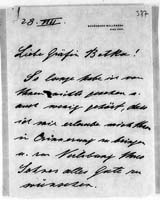 28. VIII.
Liebe Gräfin Betka!
So lange habe ich von
Ihnen nichts gesehen u.
auch wenig gehört, dass
ich mir erlaube mich Ihnen
in Erinnerung zu bringen
u. zur Ihres
Sohnes alles Gute zu
wünschen.